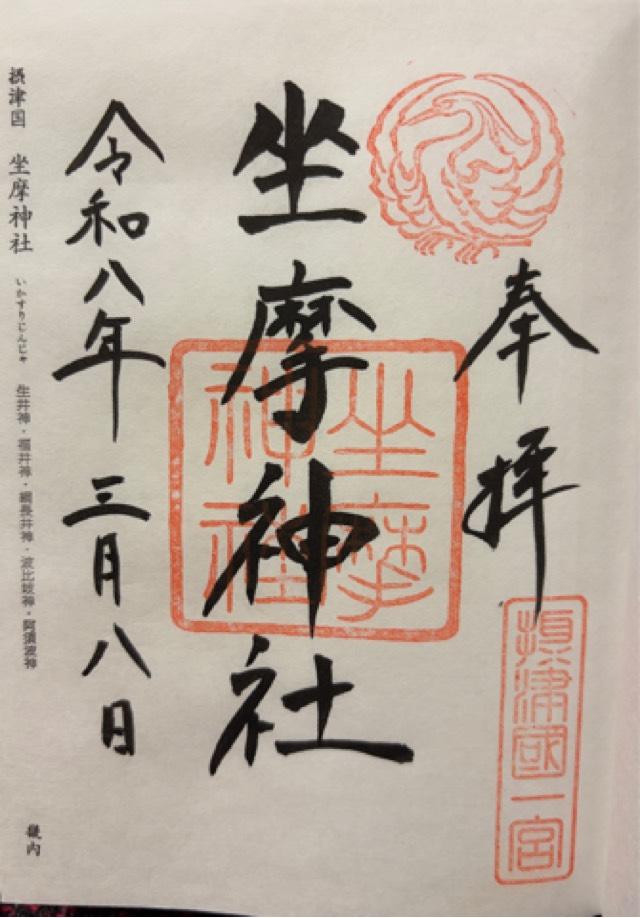 奉拝
摂津國一宮
坐摩神社
坐摩神社
令和八年 三月八日
摂津国 坐摩神社 いかすりじんじゃ 生井神・福井神・綱長井神・波比岐神・阿須波神 畿内